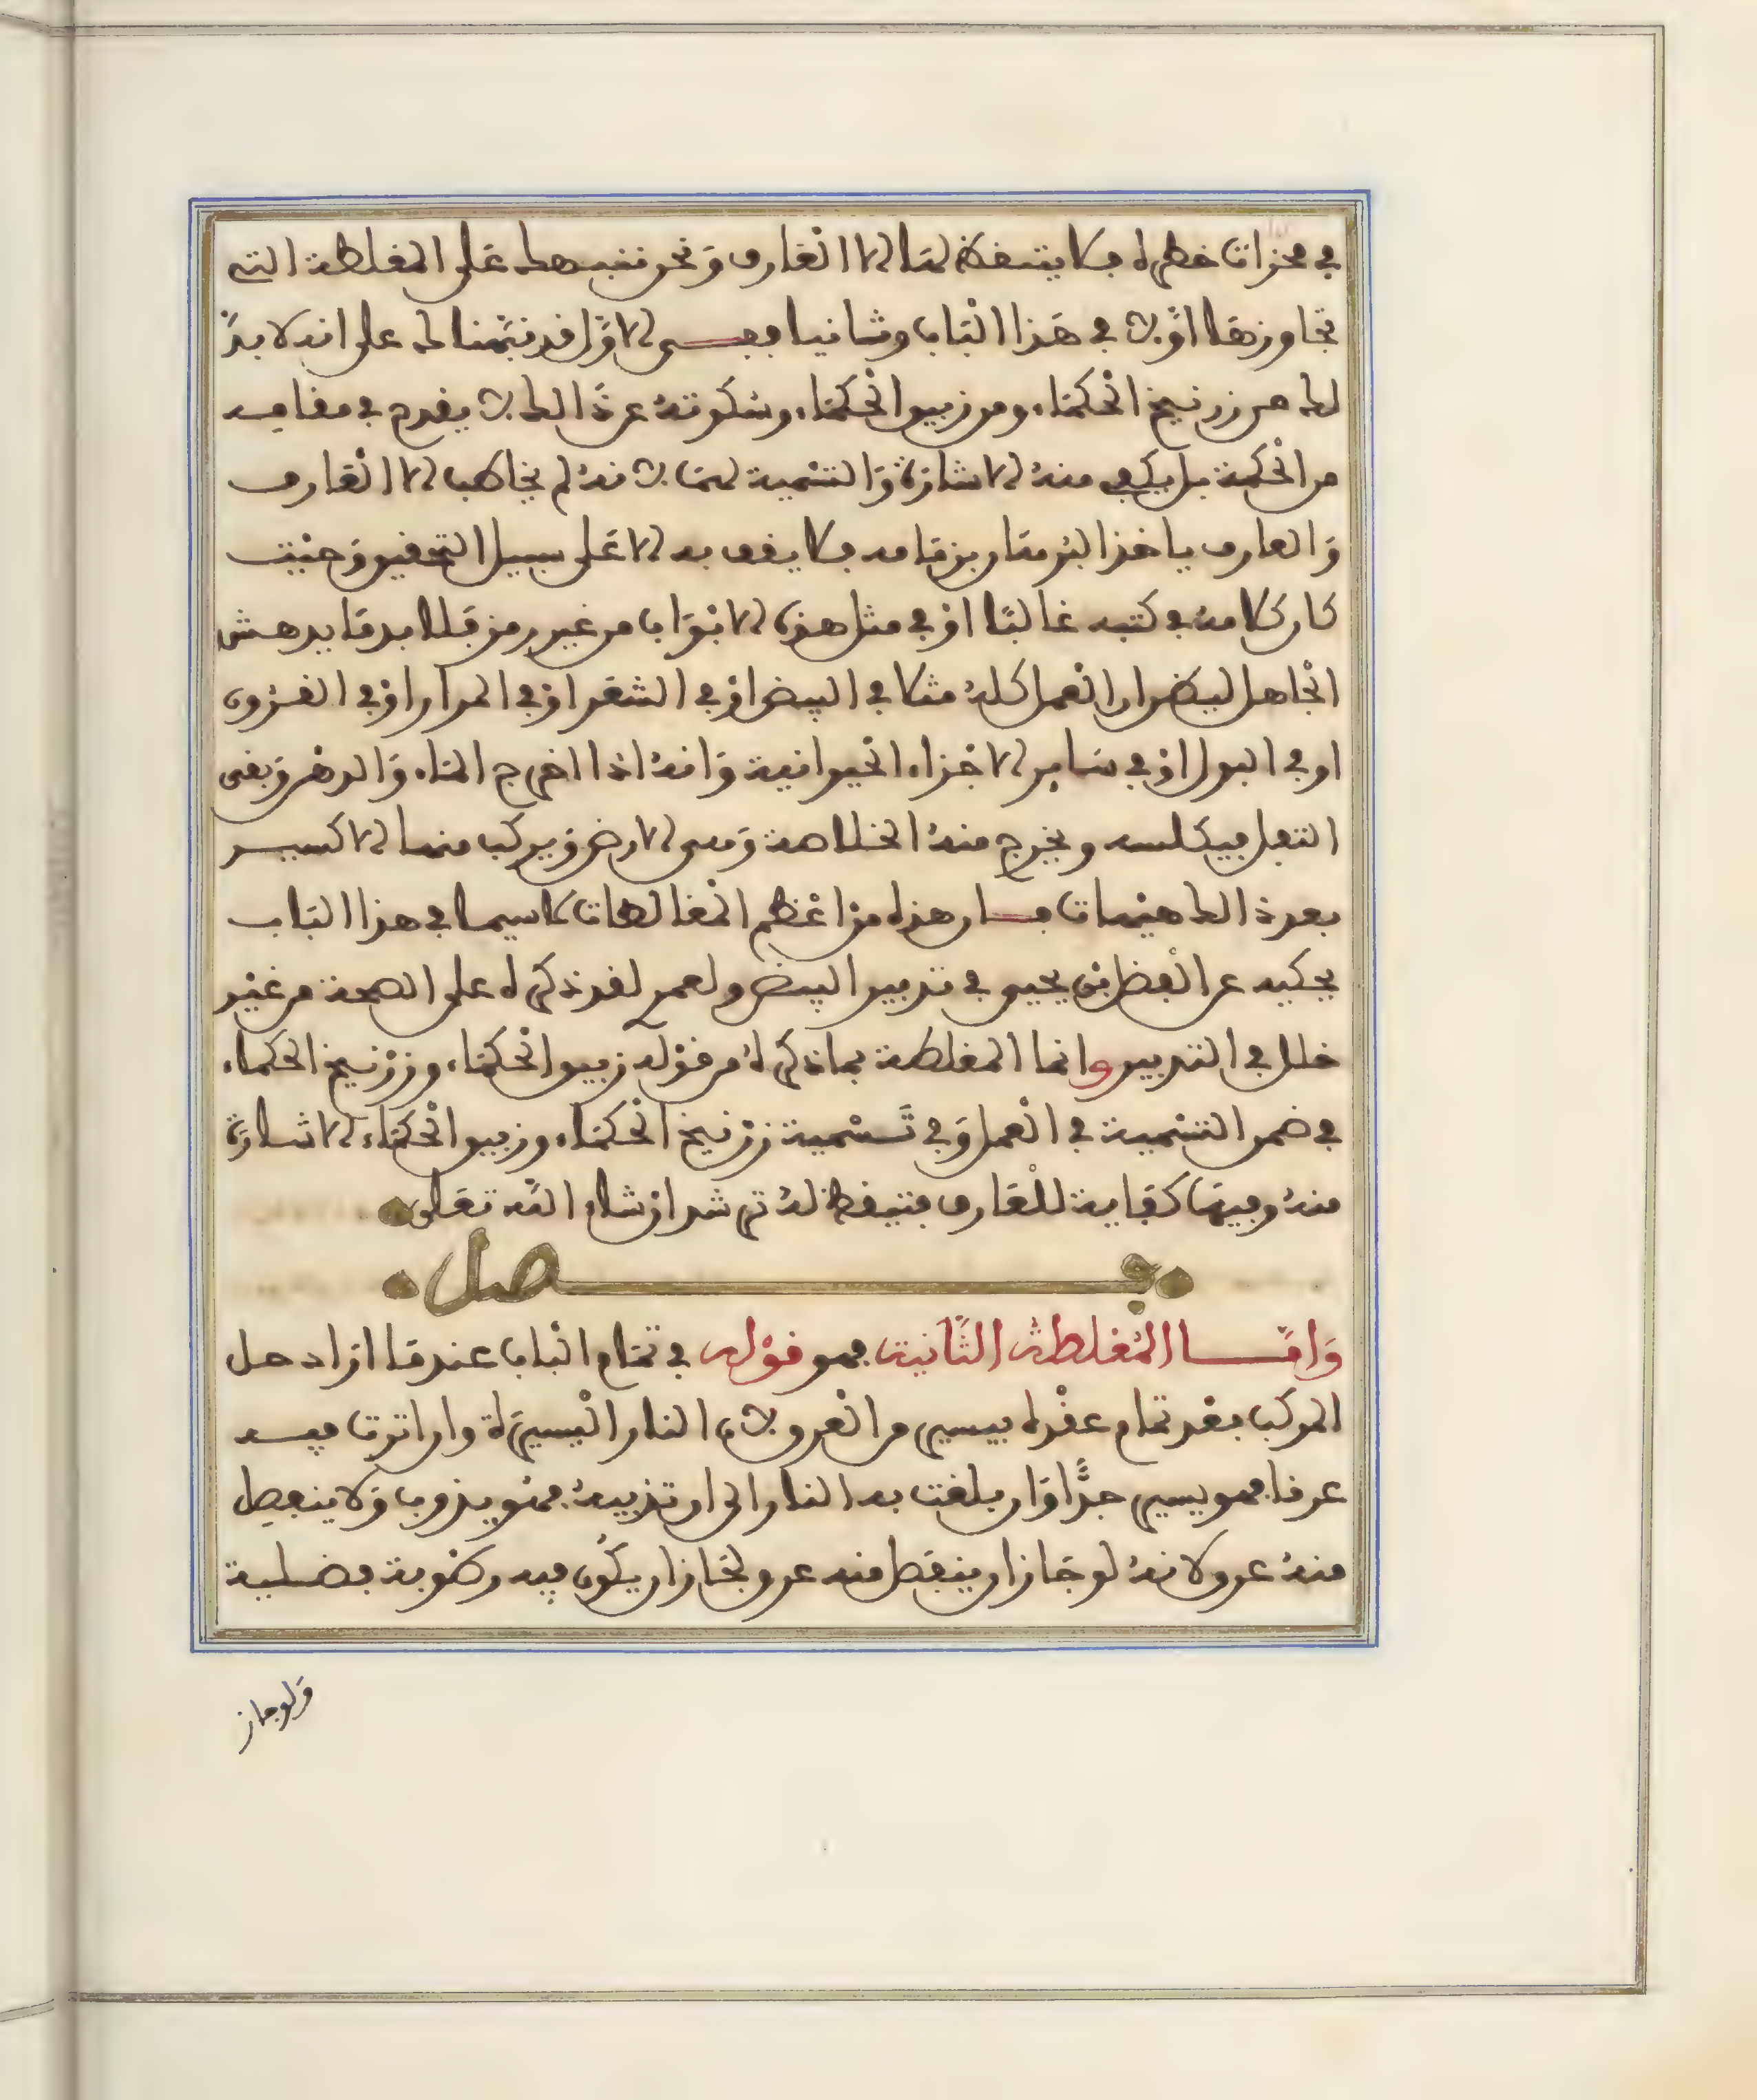 في محزات خطره فلا يتيقظ لها الا العارف ونحن ننبهك على المغلطة التي
تجاوزها اولا في هذا الباب وثانيا ففي الاول قد نبهناك على انه لا بد
لك من زرنيخ الحكماء ومن زيبق الحكماء وسكوته عن ذالك لا يقدح في مقامه
من الحكمة بل يكفي منه الاشارة والتسمية لهما لانه لم يخاطب الا العارف
والعارف ياخذ البرهان برمامه فلا يقف به الا على سبيل التحقيق وحيث
كان كلامه في كتبه غالبا او في مثل هذه الابواب من غير رمز فلا بد ما يدهش
الجاهل ليظن ان العمل كله مثلا في البيض او في الشعر او في المرار او في القرون
او في البول او في ساير الاجزاء الحيوانية وانه اذا اخرج الماء والدهن وبقي
الثفل فيكلسه ويخرج منه الخلاصة وهي الارض ويركب منها الاكسير
بعد ذالك هيهات فان هذه من اعظم المغالطات لا سيما في هذا الباب
يحكيه عن الفضل بن يحيى في تدبير البيض ولعمري لقد ذكره على الصحة من غير
خلل في التدبير وانما المغلطة بما ذكره من قوله زيبق الحكماء وزرنيخ الحكماء
في ضمن التسمية في العمل وفي تسمية زرنيخ الحكماء وزيبق الحكماء الاشارة
منه وفيها كفاية للعارف فتيقظ له ترشد ان شاء الله تعلى
فصل
واما المغلطة الثانية فهو قوله في تمام الباب عند ما اراد حل
المركب بعد تمام عقده بيسير من العرق لان النار اليسيرة وان اثرت فيه
عرقا فهو يسير جدا وان بلغت به النار الى ان تذيبه فهو يذوب ولا ينفصل
منه عرق لانه لو جاز ان ينفصل منه عرق لجاز ان يكون فيه رطوبة فضلية
ولو جاز